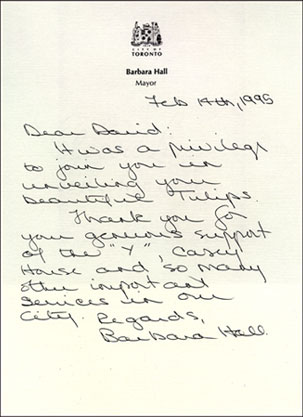 CITY OF
TORONTO
Barbara Hall
Mayor
Feb 14th, 1995
Dear David:
It was a privilege
to join you in
unveiling your
beautiful Tulips.
Thank you for
your generous support
of the "Y", Casey
House and so many
other important
services in our
City. Regards,
Barbara Hall.